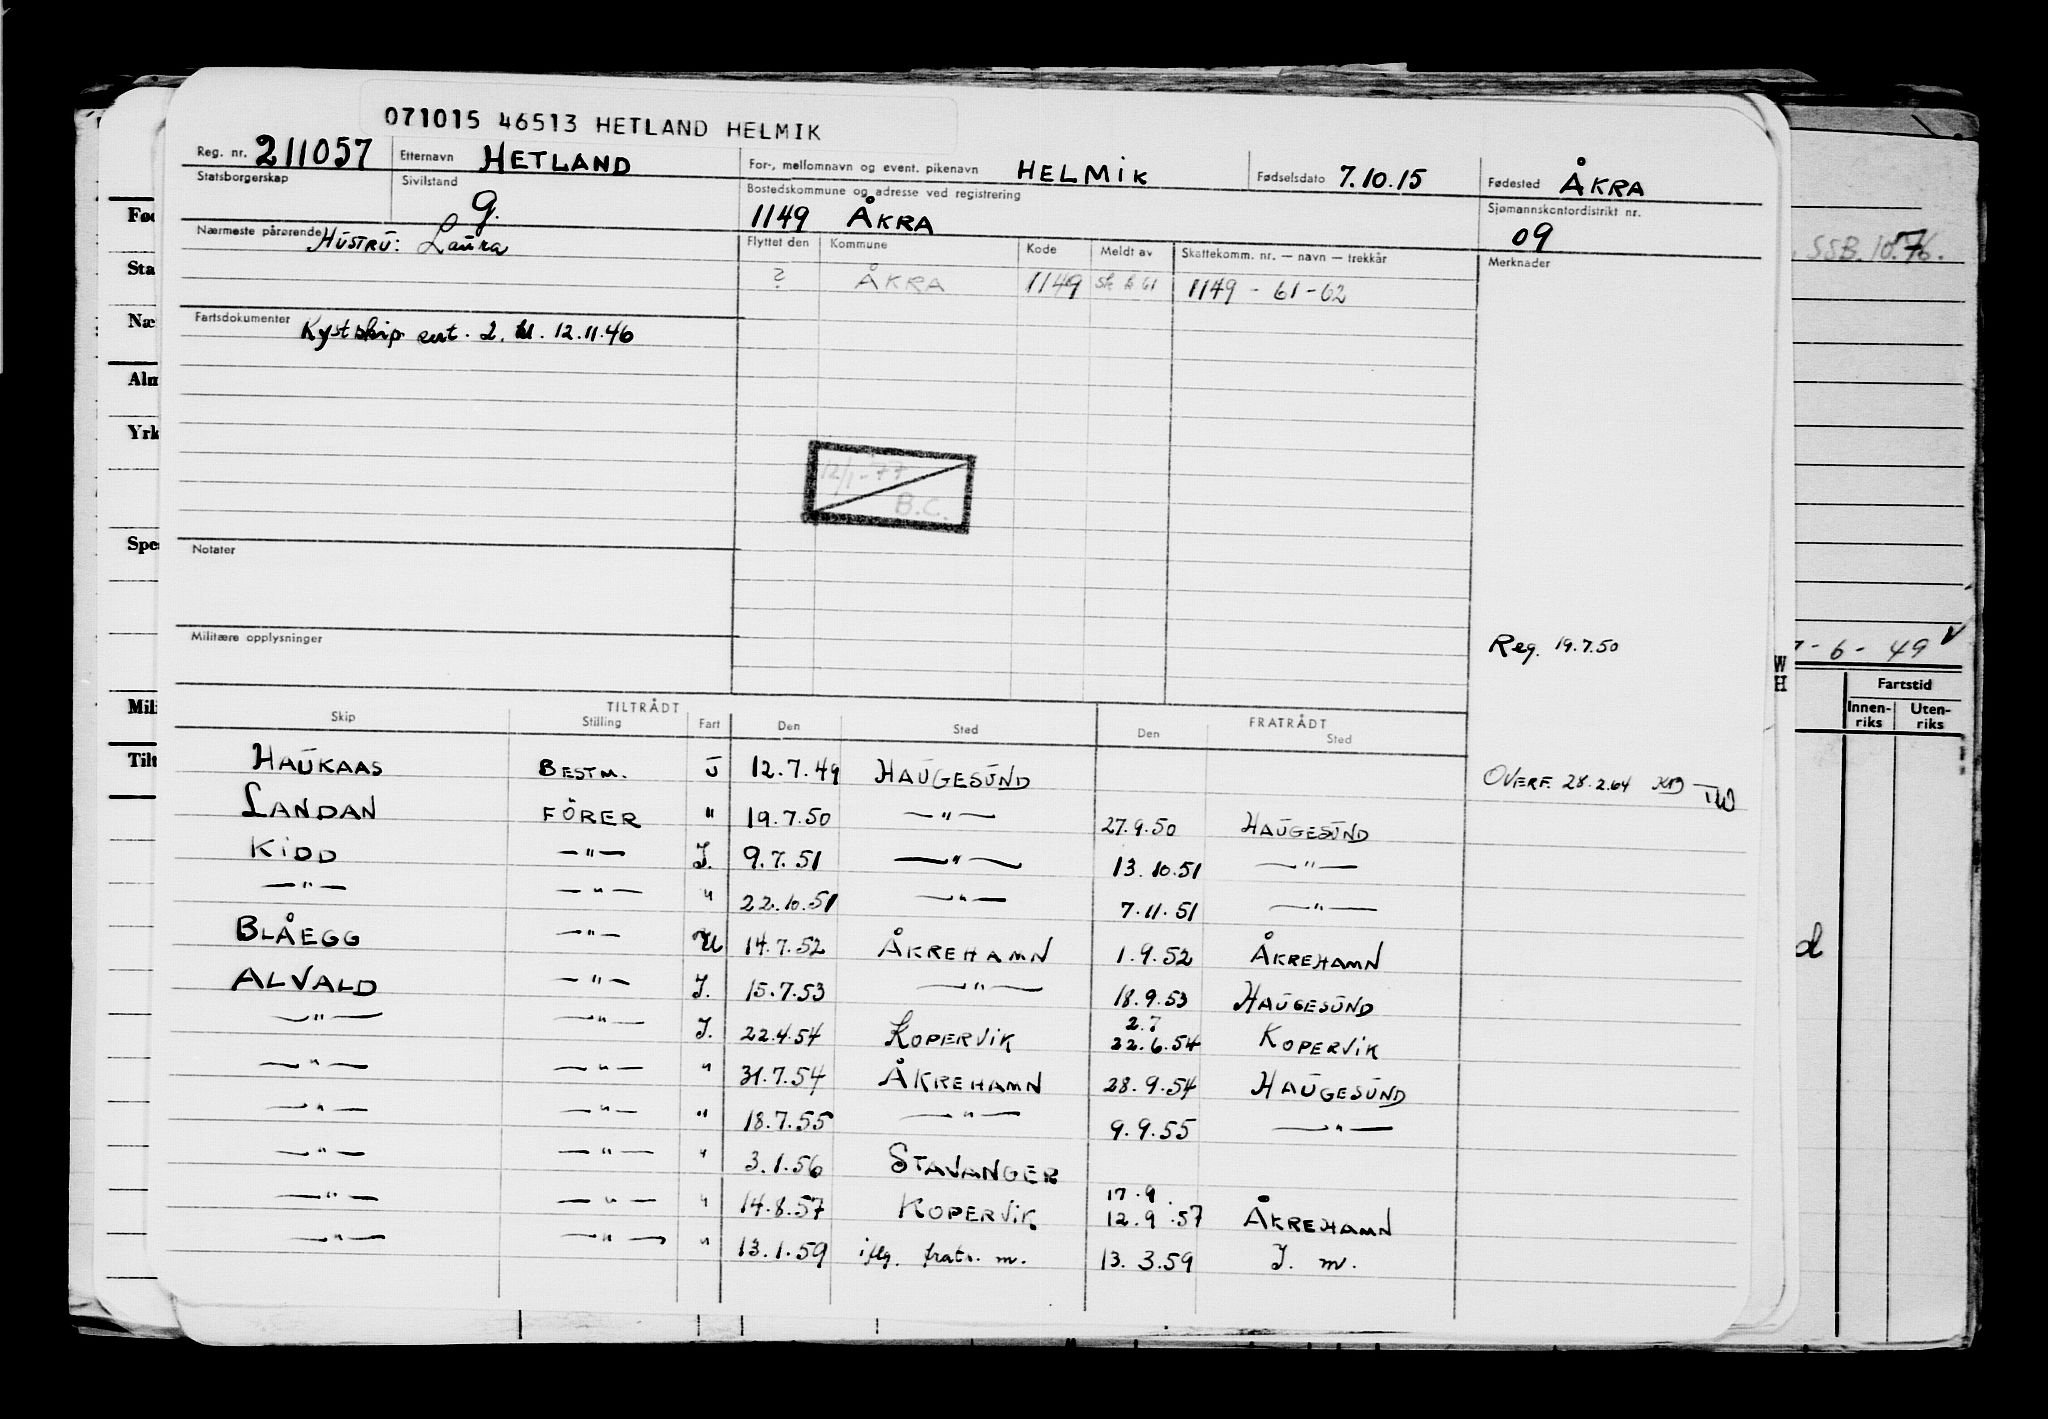 071015 46513 HETLAND HELMIK
Reg. nr. 211057 Etternavn HETLAND For-, mellomnavn og event. pikenavn HELMIK Fødselsdato 7.10.15 Fødested ÅKRA
Statsborgerskap Sivilstand g. Bostedskommune og adresse ved registrering 1149 ÅKRA Sjømannskontordistrikt nr. 09
Nærmeste pårørende HUSTRU: Laura Flyttet den Kommune Kode Meldt av Skattekomm. nr. — navn — trekkår Merknader
? ÅKRA 1149 61 1149 - 61-62
Fartsdokumenter Kystskip. sert. 2. kl. 12.11.46
12/1-77
B.C.
Notater
Militære opplysninger
Reg. 19.7.50
TILTRÅDT FRATRÅDT
Skip Stilling Fart Den Sted Den Sted
HAUKAAS BESTM. U 12.7.49 HAUGESUND
OVERF. 28.2.64
LANDAN FÖRER " 19.7.50 —"— 27.9.50 HAUGESUND
KIDD —"— I. 9.7.51 —"— 13.10.51 —"—
—"— —"— " 22.10.51 —"— 7.11.51 —"—
BLÅEGG —"— U 14.7.52 ÅKREHAMN 1.9.52 ÅKREHAMN
ALVALD —"— I. 15.7.53 —"— 18.9.53 HAUGESUND
2.7
—"— —"— I. 22.4.54 KOPERVIK 22.6.54 KOPERVIK
—"— —"— " 31.7.54 ÅKREHAMN 28.9.54 HAUGESUND
—"— —"— " 18.7.55 —"— 9.9.55 —"—
—"— —"— " 3.1.56 STAVANGER
17.9.
—"— —"— " 14.8.57 KOPERVIK 12.9.57 ÅKREHAMN
—"— —"— " 13.1.59 iflg. fratr. m. 13.3.59 I. m.
Fø
Sta
Næ
Alm
Yrk
Spe
Mil
Tilt
SSB. 10.76.
7-6-49 V
W
H
Fartstid
Innen-
riks
Uten-
riks
d